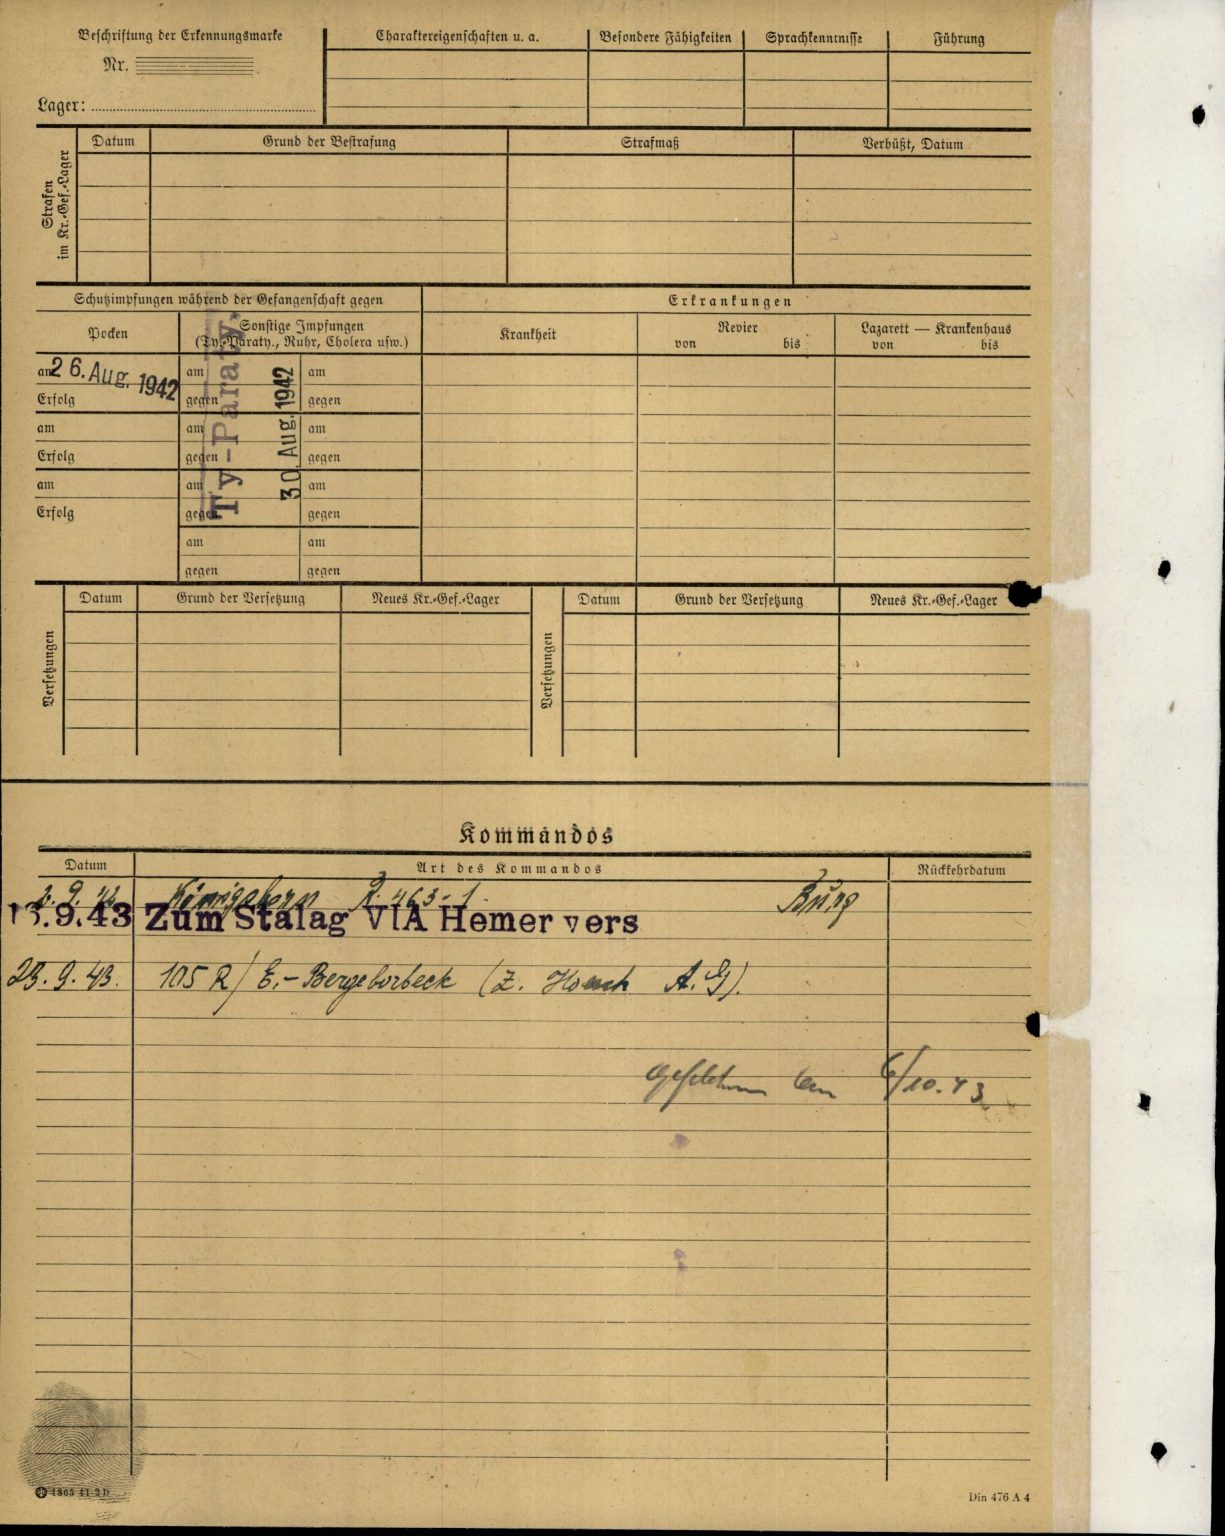 Beschriftung der Erkennungsmarke
Nr.
Lager:
Charaktereigenschaften u. a.
Besondere Fähigkeiten
Sprachkenntnisse
Führung
Strafen im Kr.-Gef.-Lager
Datum
Grund der Bestrafung
Strafmaß
Verbüßt, Datum
Schutzimpfungen während der Gefangenschaft gegen
Erkrankungen
Pocken
Sonstige Impfungen
(Ty.-Paraty., Ruhr, Cholera usw.)
Krankheit
Revier
von bis
Lazarett — Krankenhaus
von bis
am 26. Aug. 1942
Erfolg
am
Erfolg
am
Erfolg
am
gegen
am
gegen
am
gegen
am
gegen
Ty-Paraty.
30. Aug. 1942
am
gegen
am
gegen
am
gegen
am
gegen
Versetzungen
Datum
Grund der Versetzung
Neues Kr.-Gef.-Lager
Versetzungen
Datum
Grund der Versetzung
Neues Kr.-Gef.-Lager
Kommandos
Datum
Art des Kommandos
Rückkehrdatum
2. 9. 42 Königsborn R. 463-1 Burg
.9.43 Zum Stalag VIA Hemer vers
23. 9. 43. 105 R/ E.- Bergeborbeck (Z. A.G).
6/10.43
1865 41 2 D
Din 476 A 4